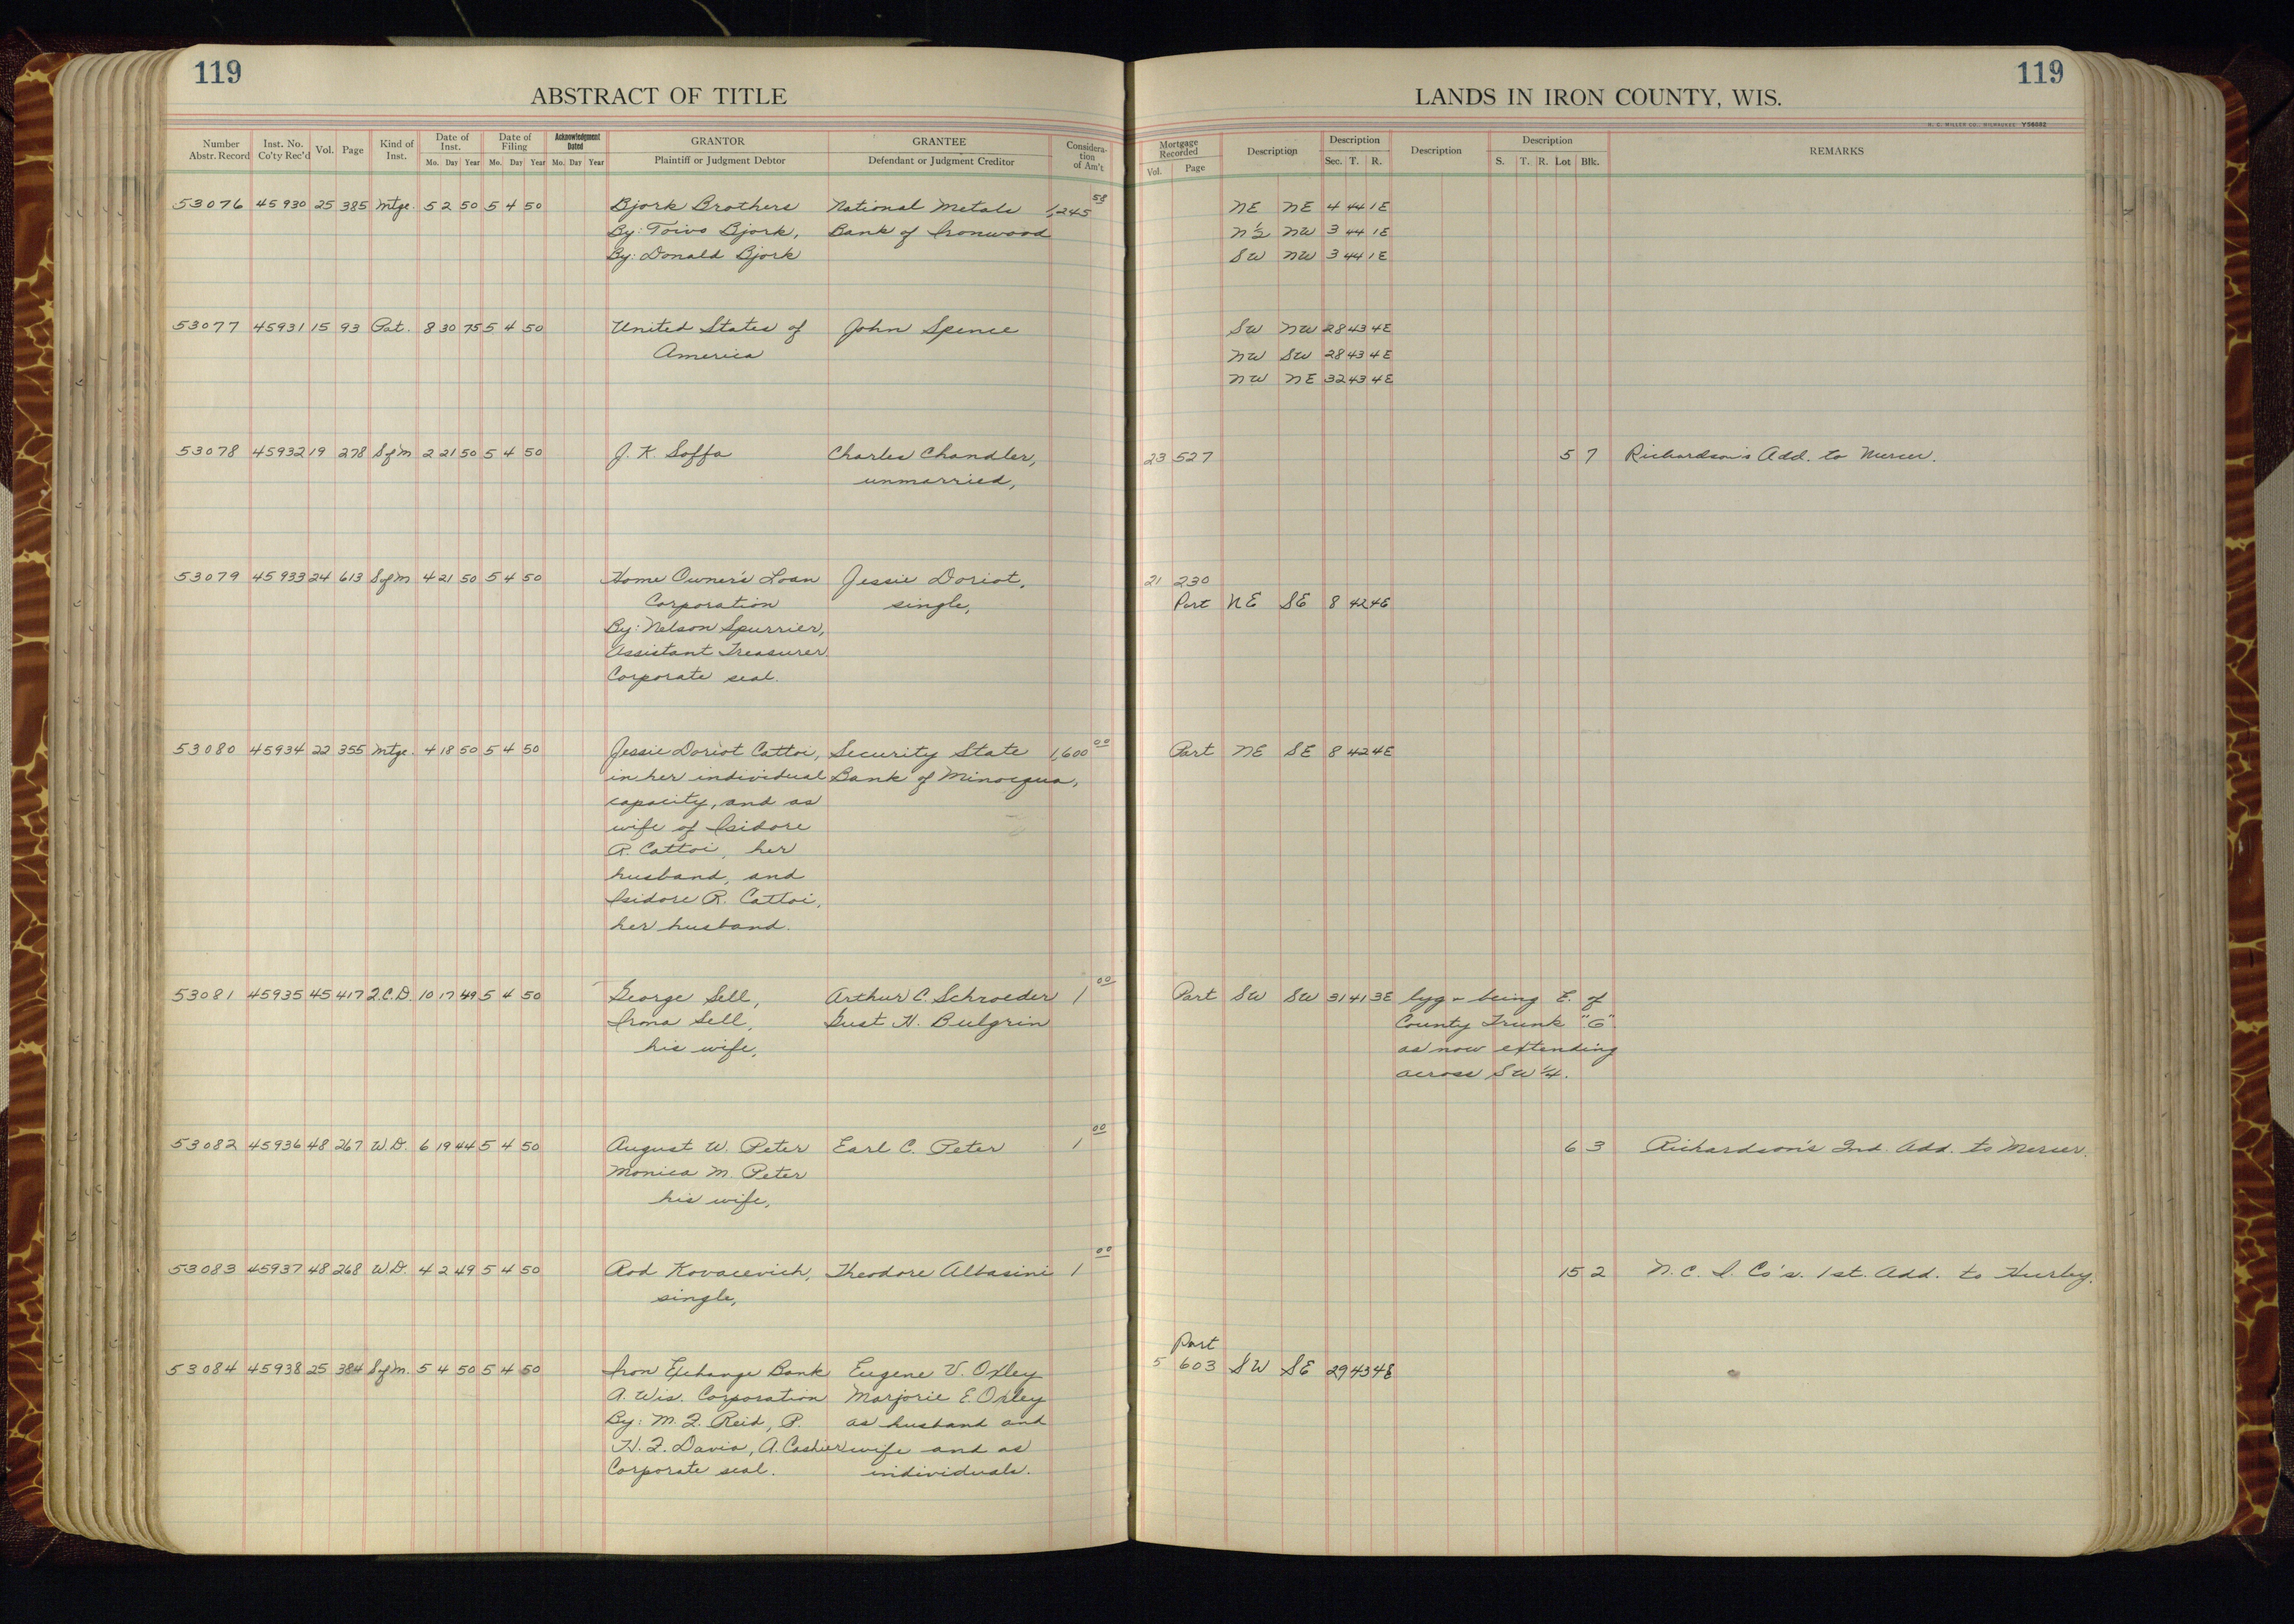 119
ABSTRACT OF TITLE
Number Abstr. Record | Inst. No. Co'ty Rec'd | Vol. | Page | Kind of Inst. | Date of Inst. Mo. Day Year | Date of Filing Mo. Day Year | Acknowledgment Dated Mo. Day Year | GRANTOR Plaintiff or Judgment Debtor | GRANTEE Defendant or Judgment Creditor | Consideration of Am't
LANDS IN IRON COUNTY, WIS.
119
H. C. MILLER CO., MILWAUKEE V56882
Mortgage Recorded Vol. Page | Description | Description Sec. T. R. | Description | Description S. T. R. Lot Blk. | REMARKS
53076 45930 25 385 Mtge. 5 2 50 5 4 50 Bjork Brothers National Metals 1,245 58 NE NE 4 44 1E
By: Toivo Bjork, Bank of Ironwood N½ NW 3 44 1E
By: Donald Bjork SW NW 3 44 1E
53077 45931 15 93 Pat. 8 30 75 5 4 50 United States of John Spence SW NW 28 43 4E
America NW SW 28 43 4E
NW NE 32 43 4E
53078 45932 19 278 Sofm 2 21 50 5 4 50 J. K. Soffa Charles Chandler, 23 527 5 7 Richardson's Add. to Mercer.
unmarried,
53079 45933 24 613 Sofm 4 21 50 5 4 50 Home Owner's Loan Jessie Doriot, 21 230
Corporation single, Part NE SE 8 42 4E
By: Nelson Spurrier,
Assistant Treasurer.
Corporate seal.
53080 45934 22 355 Mtge. 4 18 50 5 4 50 Jessie Doriot Cattoi, Security State 1,600 00 Part NE SE 8 42 4E
in her individual Bank of Minocqua,
capacity, and as
wife of Isidore
R. Cattoi, her
husband, and
Isidore R. Cattoi,
her husband.
53081 45935 45 417 2.C.D. 10 17 49 5 4 50 George Sell, Arthur C. Schroeder 1 00 Part SW SW 31 41 3E lyg - being E. of
Irma Sell, Gust H. Bulgrin County Trunk "G"
his wife, as now extending
across SW¼.
53082 45936 48 267 W.D. 6 19 44 5 4 50 August W. Peter Earl C. Peter 1 00 6 3 Richardson's 2nd. Add. to Mercer.
Monica M. Peter
his wife,
53083 45937 48 268 W.D. 4 2 49 5 4 50 Rod Kovacevich, Theodore Albasini 1 00 15 2 N. C. I. Co's. 1st. Add. to Hurley.
single,
Part
53084 45938 25 384 Sofm. 5 4 50 5 4 50 Iron Exchange Bank Eugene V. Oxley 5 603 SW SE 29 43 4E
A. Wis. Corporation Marjorie E. Oxley
By: M. J. Reid, P. as husband and
H. J. Davis, A. Cashier wife and as
Corporate seal. individuals.